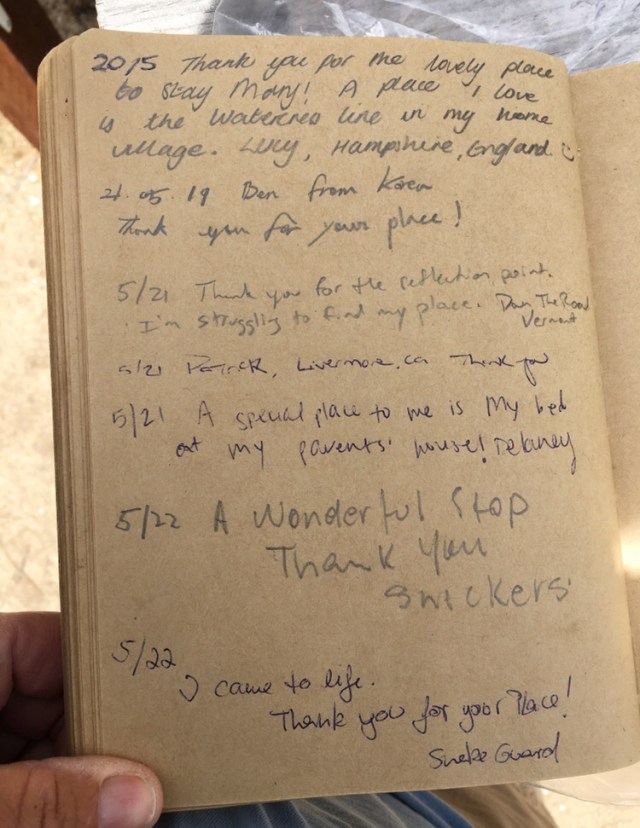 2015 Thank you for the lovely place
to stay Mary! A place I love
is the Watercress line in my home
village. Lucy, Hampshire, England.
21.05.19 Ben from Korea
Thank you for your place!
5/21 Thank you for the reflection point.
I'm struggling to find my place. Down The Road
Vermont
5/21 Patrick, Livermore, Ca Thank you
5/21 A special place to me is My bed
at my parents' house! Delaney
5/22 A Wonderful Stop
Thank You
Snickers
5/22
I came to life.
Thank you for your Place!
Snake Guard